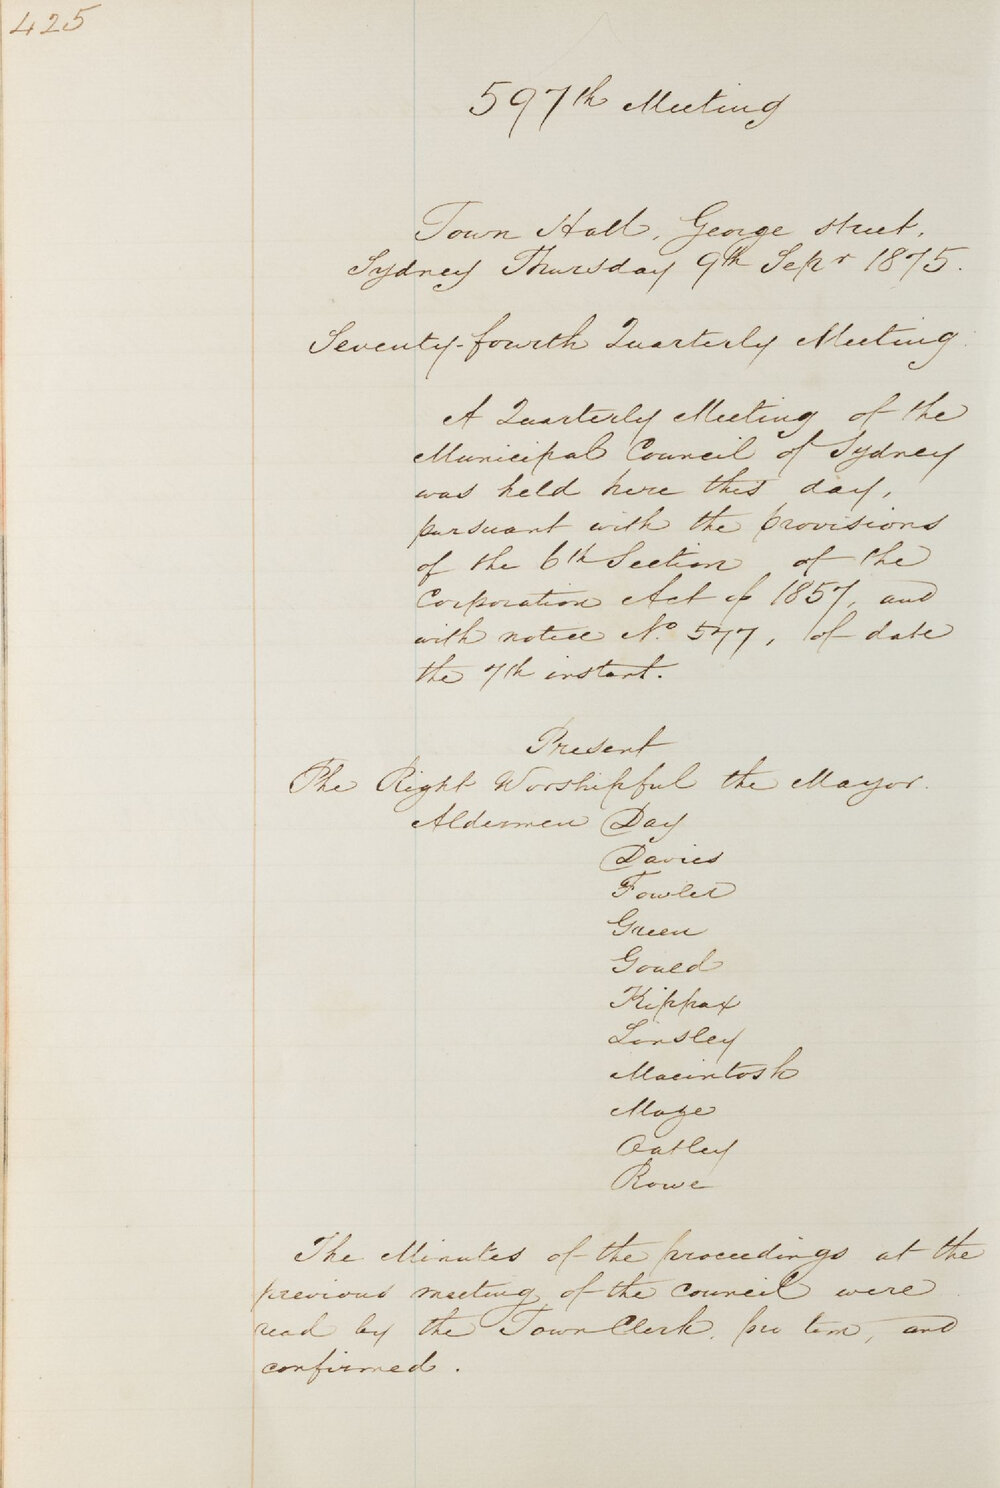 425
597th Meeting
Town Hall, George street,
Sydney Thursday 9th Sepr 1875.
Seventy-fourth Quarterly Meeting
A Quarterly Meeting of the
Municipal Council of Sydney
was held here this day,
pursuant with the provisions
of the 6th Section of the
Corporation Act of 1857, and
with notice No. 577, of date
the 7th instant.
Present
The Right Worshipful the Mayor.
Aldermen Day
Davies
Fowler
Green
Gould
Kippax
Linsley
Macintosh
Maze
Oatley
Rowe
The Minutes of the proceedings at the
previous meeting of the council were
read by the Town Clerk, pro tem, and
confirmed.